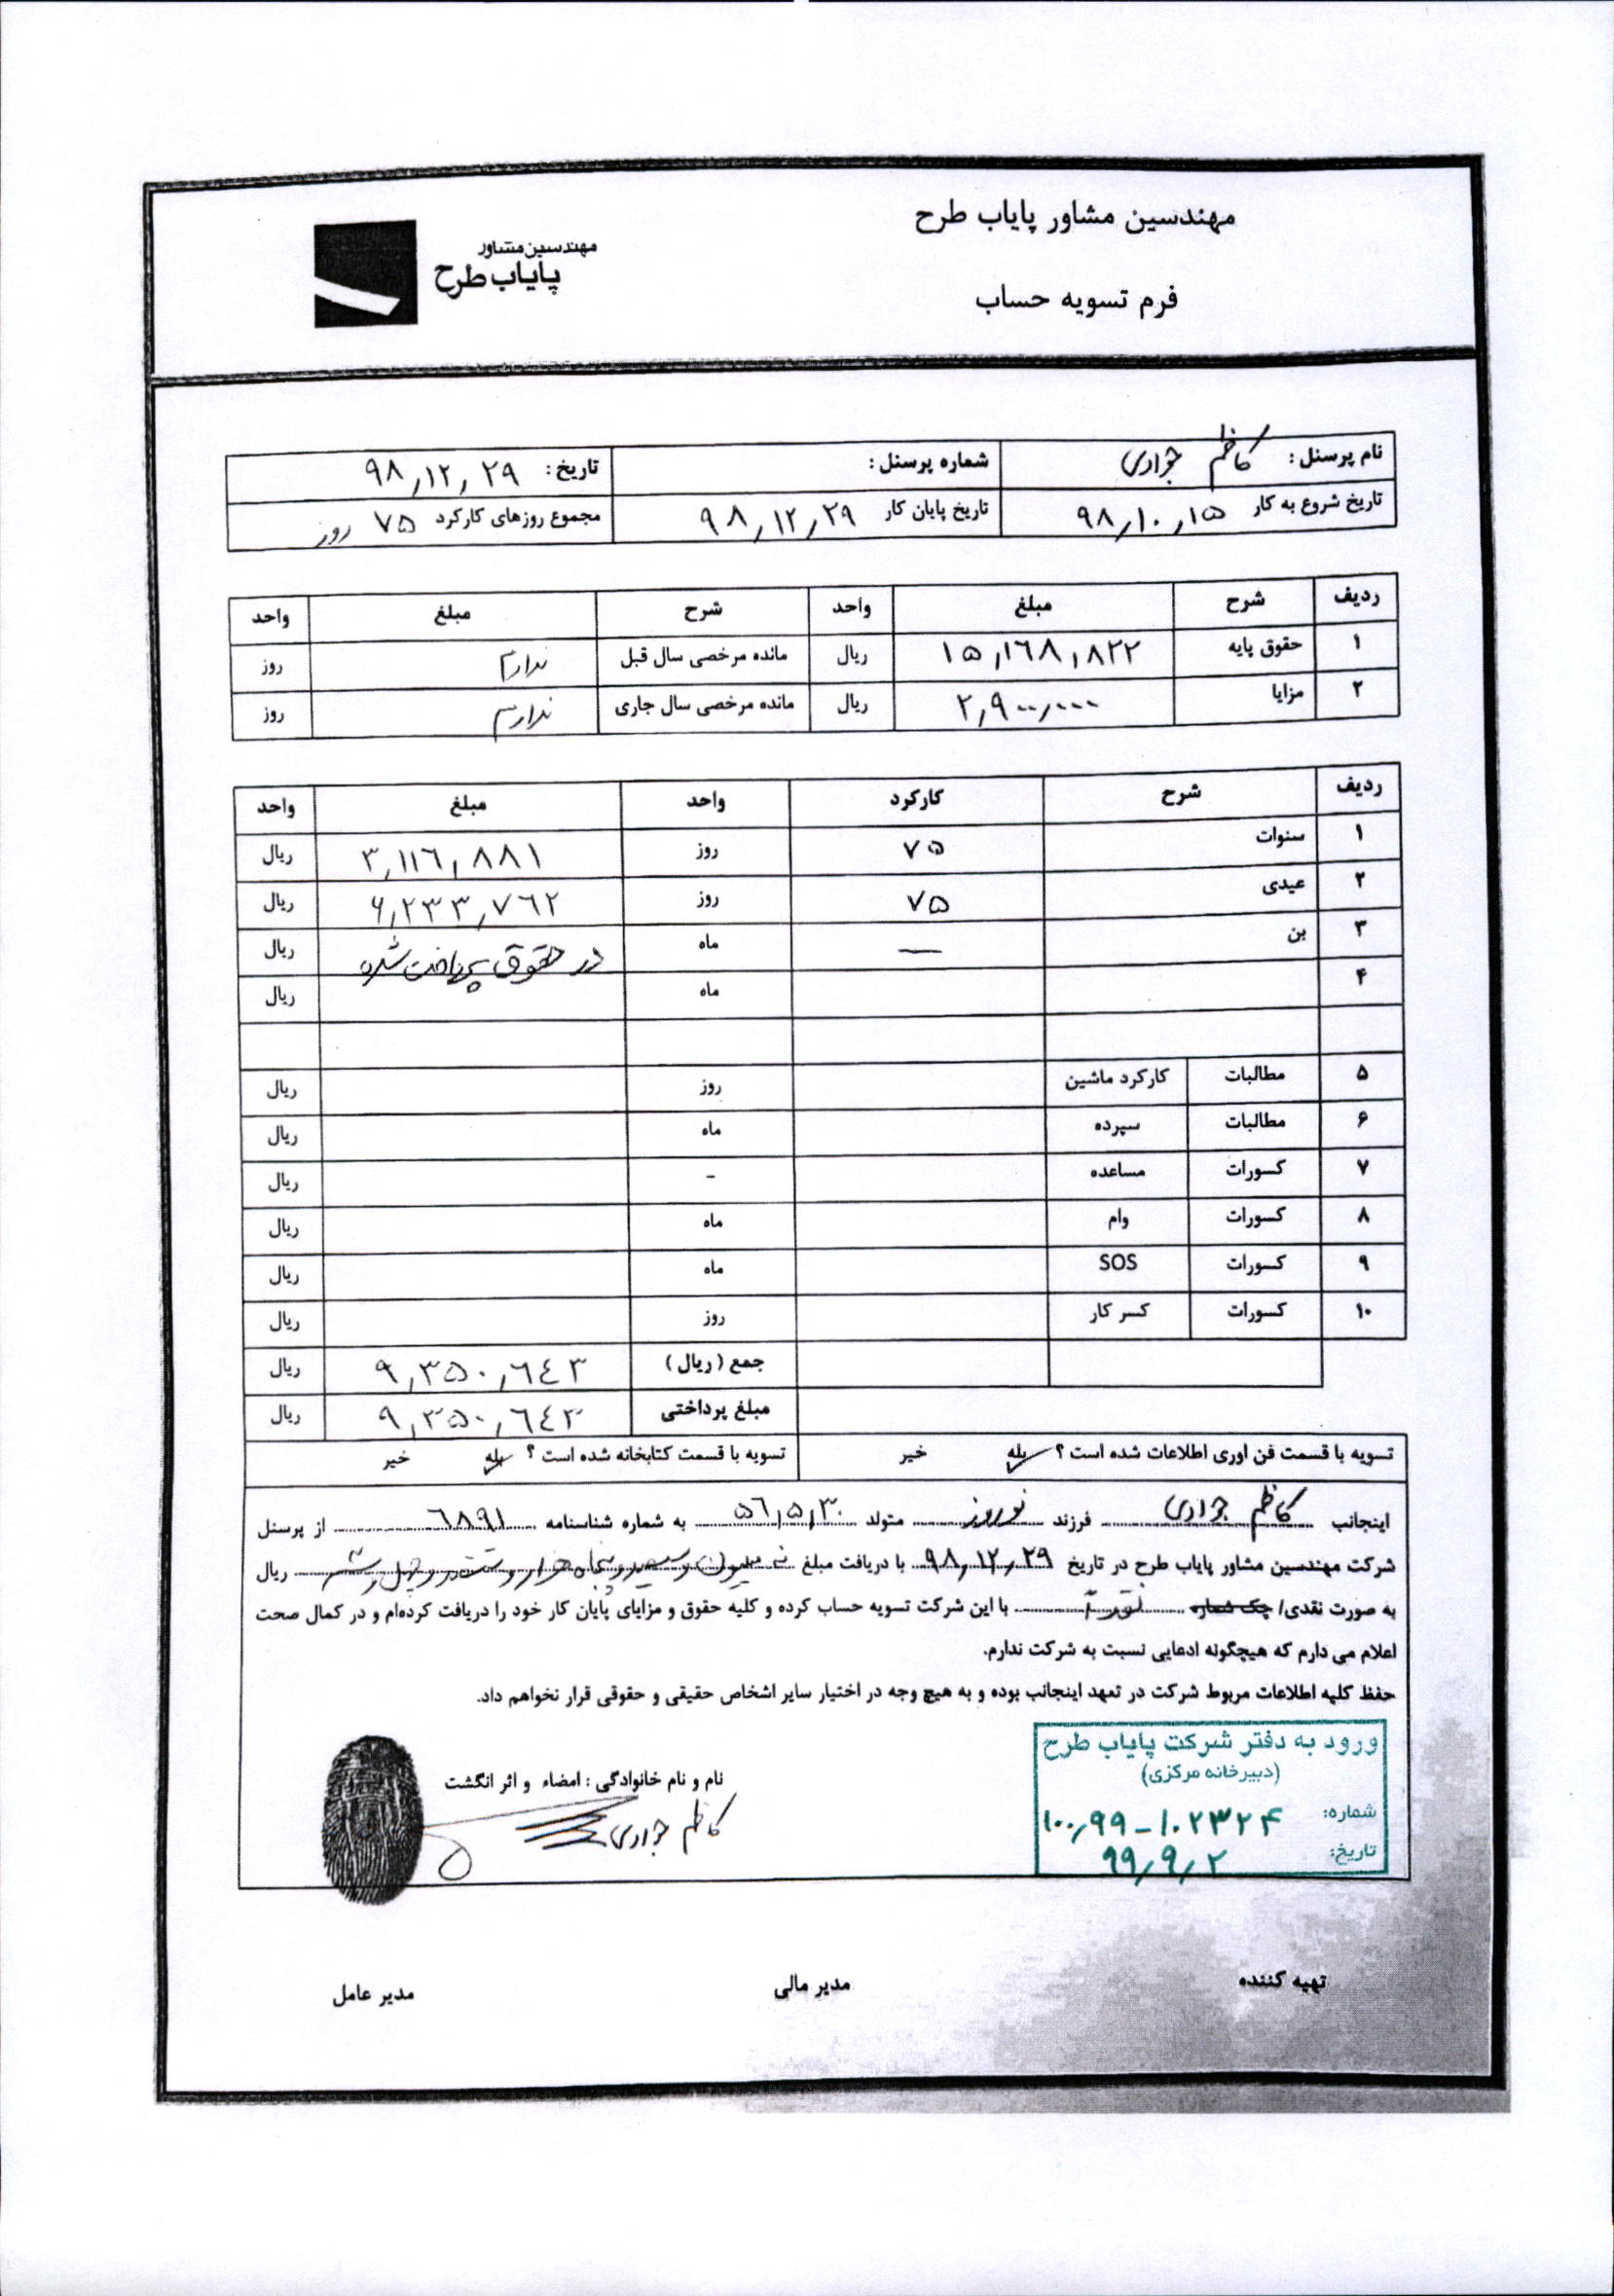 مهندسین مشاور پایاب طرح
مهندسین مشاور
پایاب طرح
فرم تسویه حساب
نام پرسنل : کاظم جوادی شماره پرسنل : تاریخ : ۹۸,۱۲,۲۹
تاریخ شروع به کار ۹۸,۱۰,۱۵ تاریخ پایان کار ۹۸,۱۲,۲۹ مجموع روزهای کارکرد ۷۵ روز
ردیف شرح مبلغ واحد شرح مبلغ واحد
۱ حقوق پایه ۱۵,۱۶۸,۸۲۲ ریال مانده مرخصی سال قبل ندارم روز
۲ مزایا ۲,۹۰۰,۰۰۰ ریال مانده مرخصی سال جاری ندارم روز
ردیف شرح کارکرد واحد مبلغ واحد
۱ سنوات ۷۵ روز ۳,۱۱۶,۸۸۱ ریال
۲ عیدی ۷۵ روز ۶,۲۳۳,۷۶۲ ریال
۳ بن — ماه در حقوق پرداخت شده ریال
۴ ماه ریال
۵ مطالبات کارکرد ماشین روز ریال
۶ مطالبات سپرده ماه ریال
۷ کسورات مساعده - ریال
۸ کسورات وام ماه ریال
۹ کسورات SOS ماه ریال
۱۰ کسورات کسر کار روز ریال
جمع (ریال) ۹,۳۵۰,۶۴۳ ریال
مبلغ پرداختی ۹,۳۵۰,۶۴۳ ریال
تسویه با قسمت فن اوری اطلاعات شده است ؟ بله خیر تسویه با قسمت کتابخانه شده است ؟ بله خیر
اینجانب کاظم جوادی فرزند نوروز متولد ۵۶,۵,۳۰ به شماره شناسنامه ۶۸۹۱ از پرسنل
شرکت مهندسین مشاور پایاب طرح در تاریخ ۹۸,۱۲,۲۹ با دریافت مبلغ نه میلیون و سیصد و پنجاه هزار و ششصد و چهل و سه ریال
به صورت نقدی/ چک شماره نقداً با این شرکت تسویه حساب کرده و کلیه حقوق و مزایای پایان کار خود را دریافت کرده‌ام و در کمال صحت
اعلام می دارم که هیچگونه ادعایی نسبت به شرکت ندارم.
حفظ کلیه اطلاعات مربوط شرکت در تعهد اینجانب بوده و به هیچ وجه در اختیار سایر اشخاص حقیقی و حقوقی قرار نخواهم داد.
ورود به دفتر شرکت پایاب طرح
(دبیرخانه مرکزی)
شماره: ۱۰۰,۹۹-۱۰۲۳۲۴
تاریخ: ۹۹,۹,۲
نام و نام خانوادگی : امضاء و اثر انگشت
کاظم جوادی
تهیه کننده مدیر مالی مدیر عامل